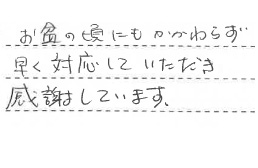 お盆の頃にもかかわらず
早く対応していただき
感謝しています。